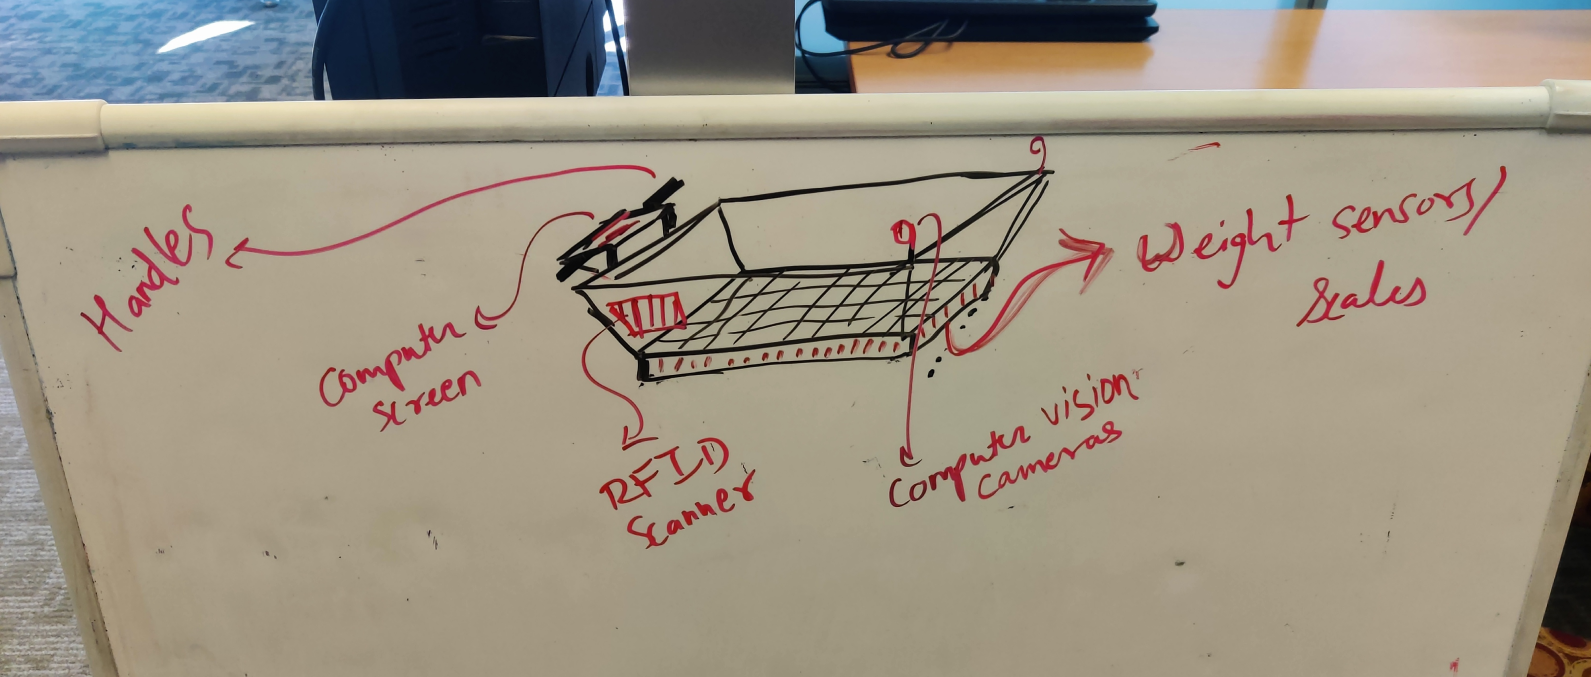 Handles
Computer
screen
RFID
scanner
Computer vision
cameras
Weight sensors/
scales